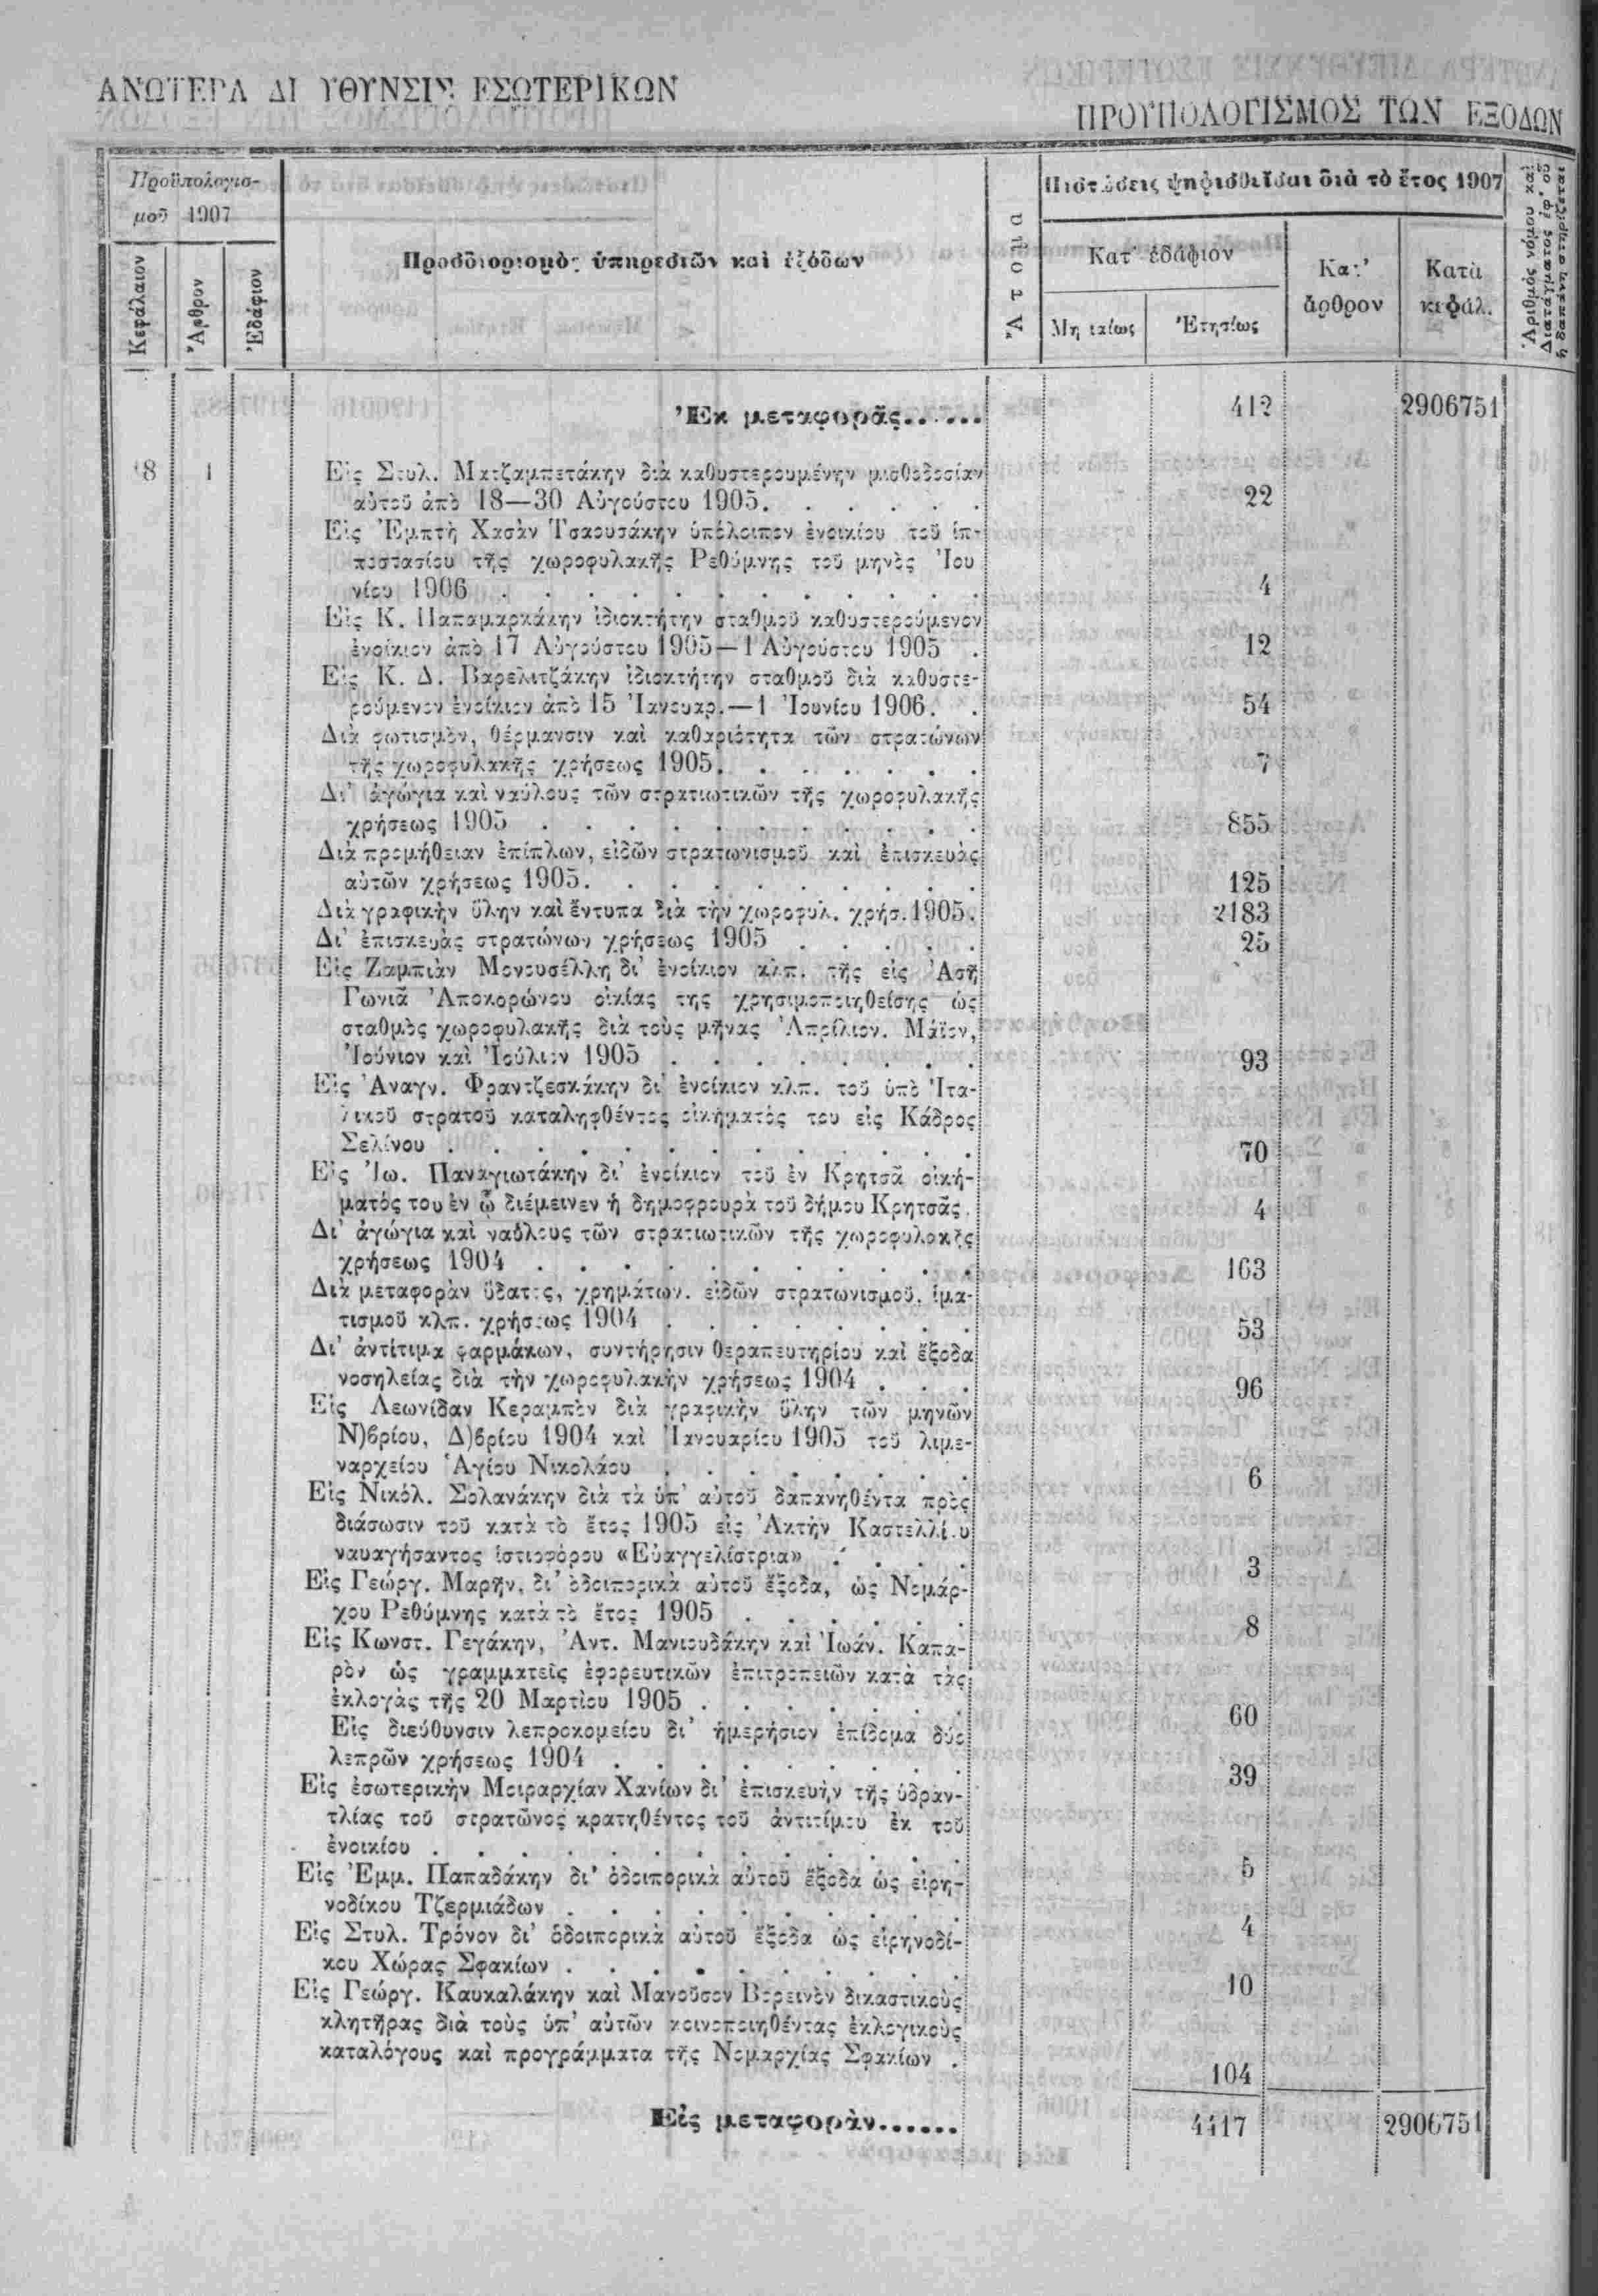 ΑΝΩΤΕΡΑ ΔΙ ΥΘΥΝΣΙΣ ΕΣΩΤΕΡΙΚΩΝ
ΠΡΟΥΠΟΛΟΓΙΣΜΟΣ ΤΩΝ ΕΞΟΔΩΝ
Προϋπολογισ-
μοῦ 1907
Κεφάλαιον
Ἄρθρον
Ἐδάφιον
Προσδιορισμὸς ὑπηρεσιῶν καὶ ἐξόδων
Πιστώσεις ψηφισθεῖσαι διὰ τὸ ἔτος 1907
Κατ' ἐδάφιον
Μηνιαίως
Ἐτησίως
Κατ'
ἄρθρον
Κατὰ
κεφάλ.
Ἐκ μεταφορᾶς...... 412 2906751
18 1 Εἰς Στυλ. Ματζαμπετάκην διὰ καθυστερουμένην μισθοδοσίαν
αὐτοῦ ἀπὸ 18—30 Αὐγούστου 1905. . . . . . 22
Εἰς Ἐμπτὴ Χασὰν Τσαουσάκην ὑπόλοιπον ἐνοικίου τοῦ ἱπ-
ποστασίου τῆς χωροφυλακῆς Ρεθύμνης τοῦ μηνὸς Ἰου
νίου 1906 . . . . . . . . . . . 4
Εἰς Κ. Παπαμαρκάκην ἰδιοκτήτην σταθμοῦ καθυστερούμενον
ἐνοίκιον ἀπὸ 17 Αὐγούστου 1905—1 Αὐγούστου 1905 . 12
Εἰς Κ. Δ. Βαρελιτζάκην ἰδιοκτήτην σταθμοῦ διὰ καθυστε-
ρούμενον ἐνοίκιον ἀπὸ 15 Ἰανουαρ.—1 Ἰουνίου 1906. . 54
Διὰ φωτισμὸν, θέρμανσιν καὶ καθαριότητα τῶν στρατώνων
τῆς χωροφυλακῆς χρήσεως 1905. . . . . . . 7
Δι' ἀγώγια καὶ ναύλους τῶν στρατιωτικῶν τῆς χωροφυλακῆς
χρήσεως 1905 . . . . . . . . . . 855
Διὰ προμήθειαν ἐπίπλων, εἰδῶν στρατωνισμοῦ καὶ ἐπισκευὰς
αὐτῶν χρήσεως 1905. . . . . . . . . . 125
Διὰ γραφικὴν ὕλην καὶ ἔντυπα διὰ τὴν χωροφυλ. χρήσ. 1905. 2183
Δι' ἐπισκευὰς στρατώνων χρήσεως 1905 . . . . . 25
Εἰς Ζαμπιὰν Μονουσέλλη δι' ἐνοίκιον κλπ. τῆς εἰς Ἀσῆ
Γωνιᾶ Ἀποκορώνου οἰκίας της χρησιμοποιηθείσης ὡς
σταθμὸς χωροφυλακῆς διὰ τοὺς μῆνας Ἀπρίλιον. Μάϊον,
Ἰούνιον καὶ Ἰούλιον 1905 . . . . . . . . 93
Εἰς Ἀναγν. Φραντζεσκάκην δι' ἐνοίκιον κλπ. τοῦ ὑπὸ Ἰτα-
λικοῦ στρατοῦ καταληφθέντος οἰκήματός του εἰς Κάδρος
Σελίνου . . . . . . . . . . . . 70
Εἰς Ἰω. Παναγιωτάκην δι' ἐνοίκιον τοῦ ἐν Κρητσᾶ οἰκή-
ματός του ἐν ᾧ διέμεινεν ἡ δημοφρουρὰ τοῦ δήμου Κρητσᾶς. 4
Δι' ἀγώγια καὶ ναύλους τῶν στρατιωτικῶν τῆς χωροφυλακῆς
χρήσεως 1904 . . . . . . . . . . 163
Διὰ μεταφορὰν ὕδατος, χρημάτων. εἰδῶν στρατωνισμοῦ. ἱμα-
τισμοῦ κλπ. χρήσεως 1904 . . . . . . . . 53
Δι' ἀντίτιμα φαρμάκων, συντήρησιν θεραπευτηρίου καὶ ἔξοδα
νοσηλείας διὰ τὴν χωροφυλακὴν χρήσεως 1904 . . . 96
Εἰς Λεωνίδαν Κεραμπὸν διὰ γραφικὴν ὕλην τῶν μηνῶν
Ν)βρίου, Δ)βρίου 1904 καὶ Ἰανουαρίου 1905 τοῦ λιμε-
ναρχείου Ἁγίου Νικολάου . . . . . . . . 6
Εἰς Νικόλ. Σολανάκην διὰ τὰ ὑπ' αὐτοῦ δαπανηθέντα πρὸς
διάσωσιν τοῦ κατὰ τὸ ἔτος 1905 εἰς Ἀκτὴν Καστελλίου
ναυαγήσαντος ἱστιοφόρου «Εὐαγγελίστρια» . . . . 3
Εἰς Γεώργ. Μαρῆν, δι' ὁδοιπορικὰ αὐτοῦ ἔξοδα, ὡς Νομάρ-
χου Ρεθύμνης κατὰ τὸ ἔτος 1905 . . . . . . 8
Εἰς Κωνστ. Γεγάκην, Ἀντ. Μανιουδάκην καὶ Ἰωάν. Καπα-
ρὸν ὡς γραμματεῖς ἐφορευτικῶν ἐπιτροπειῶν κατὰ τὰς
ἐκλογὰς τῆς 20 Μαρτίου 1905 . . . . . . . 60
Εἰς διεύθυνσιν λεπροκομείου δι' ἡμερήσιον ἐπίδομα δύο
λεπρῶν χρήσεως 1904 . . . . . . . . . 39
Εἰς ἐσωτερικὴν Μοιραρχίαν Χανίων δι' ἐπισκευὴν τῆς ὑδραν-
τλίας τοῦ στρατῶνος κρατηθέντος τοῦ ἀντιτίμου ἐκ τοῦ
ἐνοικίου . . . . . . . . . . . . 5
Εἰς Ἐμμ. Παπαδάκην δι' ὁδοιπορικὰ αὐτοῦ ἔξοδα ὡς εἰρη-
νοδίκου Τζερμιάδων . . . . . . . . . . 4
Εἰς Στυλ. Τρόνον δι' ὁδοιπορικὰ αὐτοῦ ἔξοδα ὡς εἰρηνοδί-
κου Χώρας Σφακίων . . . . . . . . . . 10
Εἰς Γεώργ. Καυκαλάκην καὶ Μανοῦσον Βορεινὸν δικαστικοὺς
κλητῆρας διὰ τοὺς ὑπ' αὐτῶν κοινοποιηθέντας ἐκλογικοὺς
καταλόγους καὶ προγράμματα τῆς Νομαρχίας Σφακίων . 104
Εἰς μεταφορὰν...... 4417 2906751